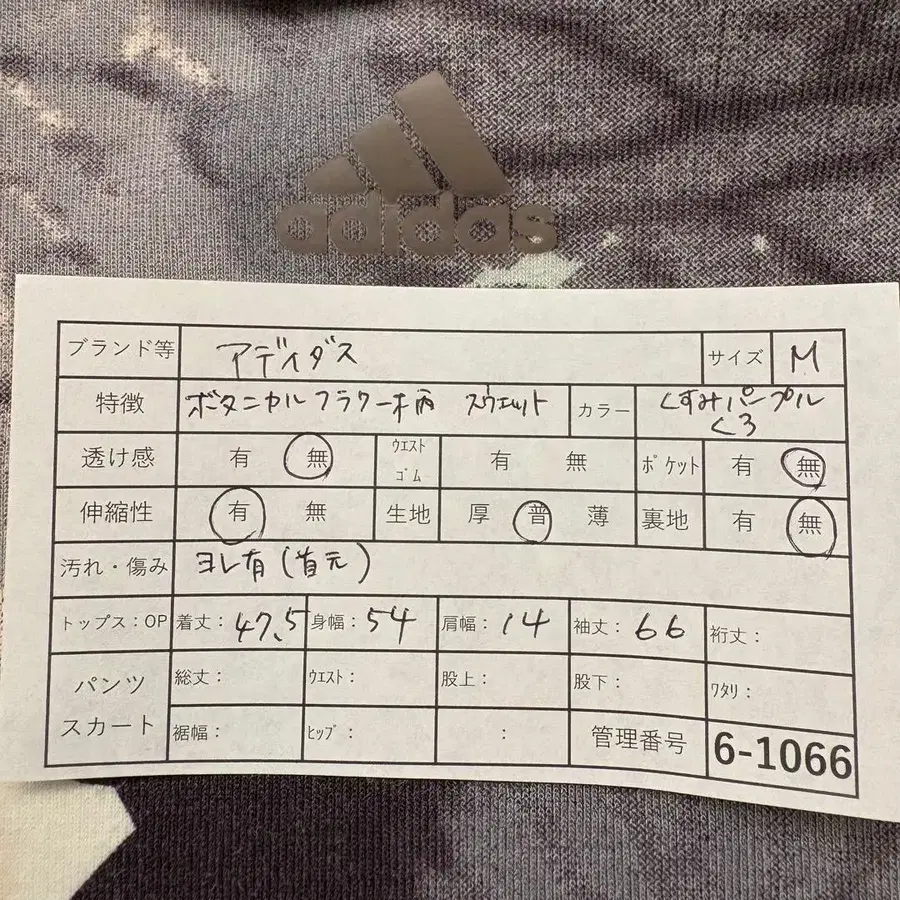 adidas
ブランド等 アディダス サイズ M
特徴 ボタニカルフラワー柄 スウェット カラー くすみパープル
くろ
透け感 有 無 ウエスト ゴム 有 無 ポケット 有 無
伸縮性 有 無 生地 厚 普 薄 裏地 有 無
汚れ・傷み ヨレ有(首元)
トップス:OP 着丈: 47.5 身幅: 54 肩幅: 14 袖丈: 66 裄丈:
パンツ 総丈: ウエスト: 股上: 股下: ワタリ:
スカート 裾幅: ヒップ: : 管理番号 6-1066